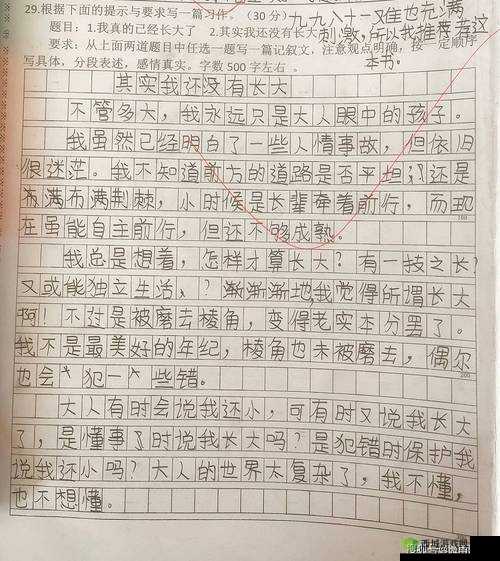 29.根据下面的提示与要求写一篇习作。（30分）
九九八十一难也充满
题目：1.我真的已经长大了 2.其实我还没有长大
刺激,所以我推荐看这
要求：从上面两道题目中任选一题写一篇记叙文，注意观点明确，按一定顺序
本书。
写具体，分段表述，感情真实。字数500字左右。
其实我还没有长大
不管多大，我永远只是大人眼中的孩子。
我虽然已经明白了一些人情事故，但依旧
很迷茫。我不知道前方的道路是否平坦 还是
布满布满荆棘，小时候是长辈牵着前行，而现
在虽能自主前行，但还不够成熟。
100
我总是想着，怎样才算长大？有一技之长？
又或能独立生活、？渐渐渐地,我觉得所谓长大
啊！不过是被磨去棱角，变得老实本分罢了。
我不是最美好的年纪，棱角也未被磨去，偶尔
也会犯一些错。
200
大人有时会说我还小，可有时又说我长大
了，是懂事了时说我长大吗？是犯错时保护我
说我还小吗？大人的世界太复杂了，我不懂，
也不想懂。
西城游戏网